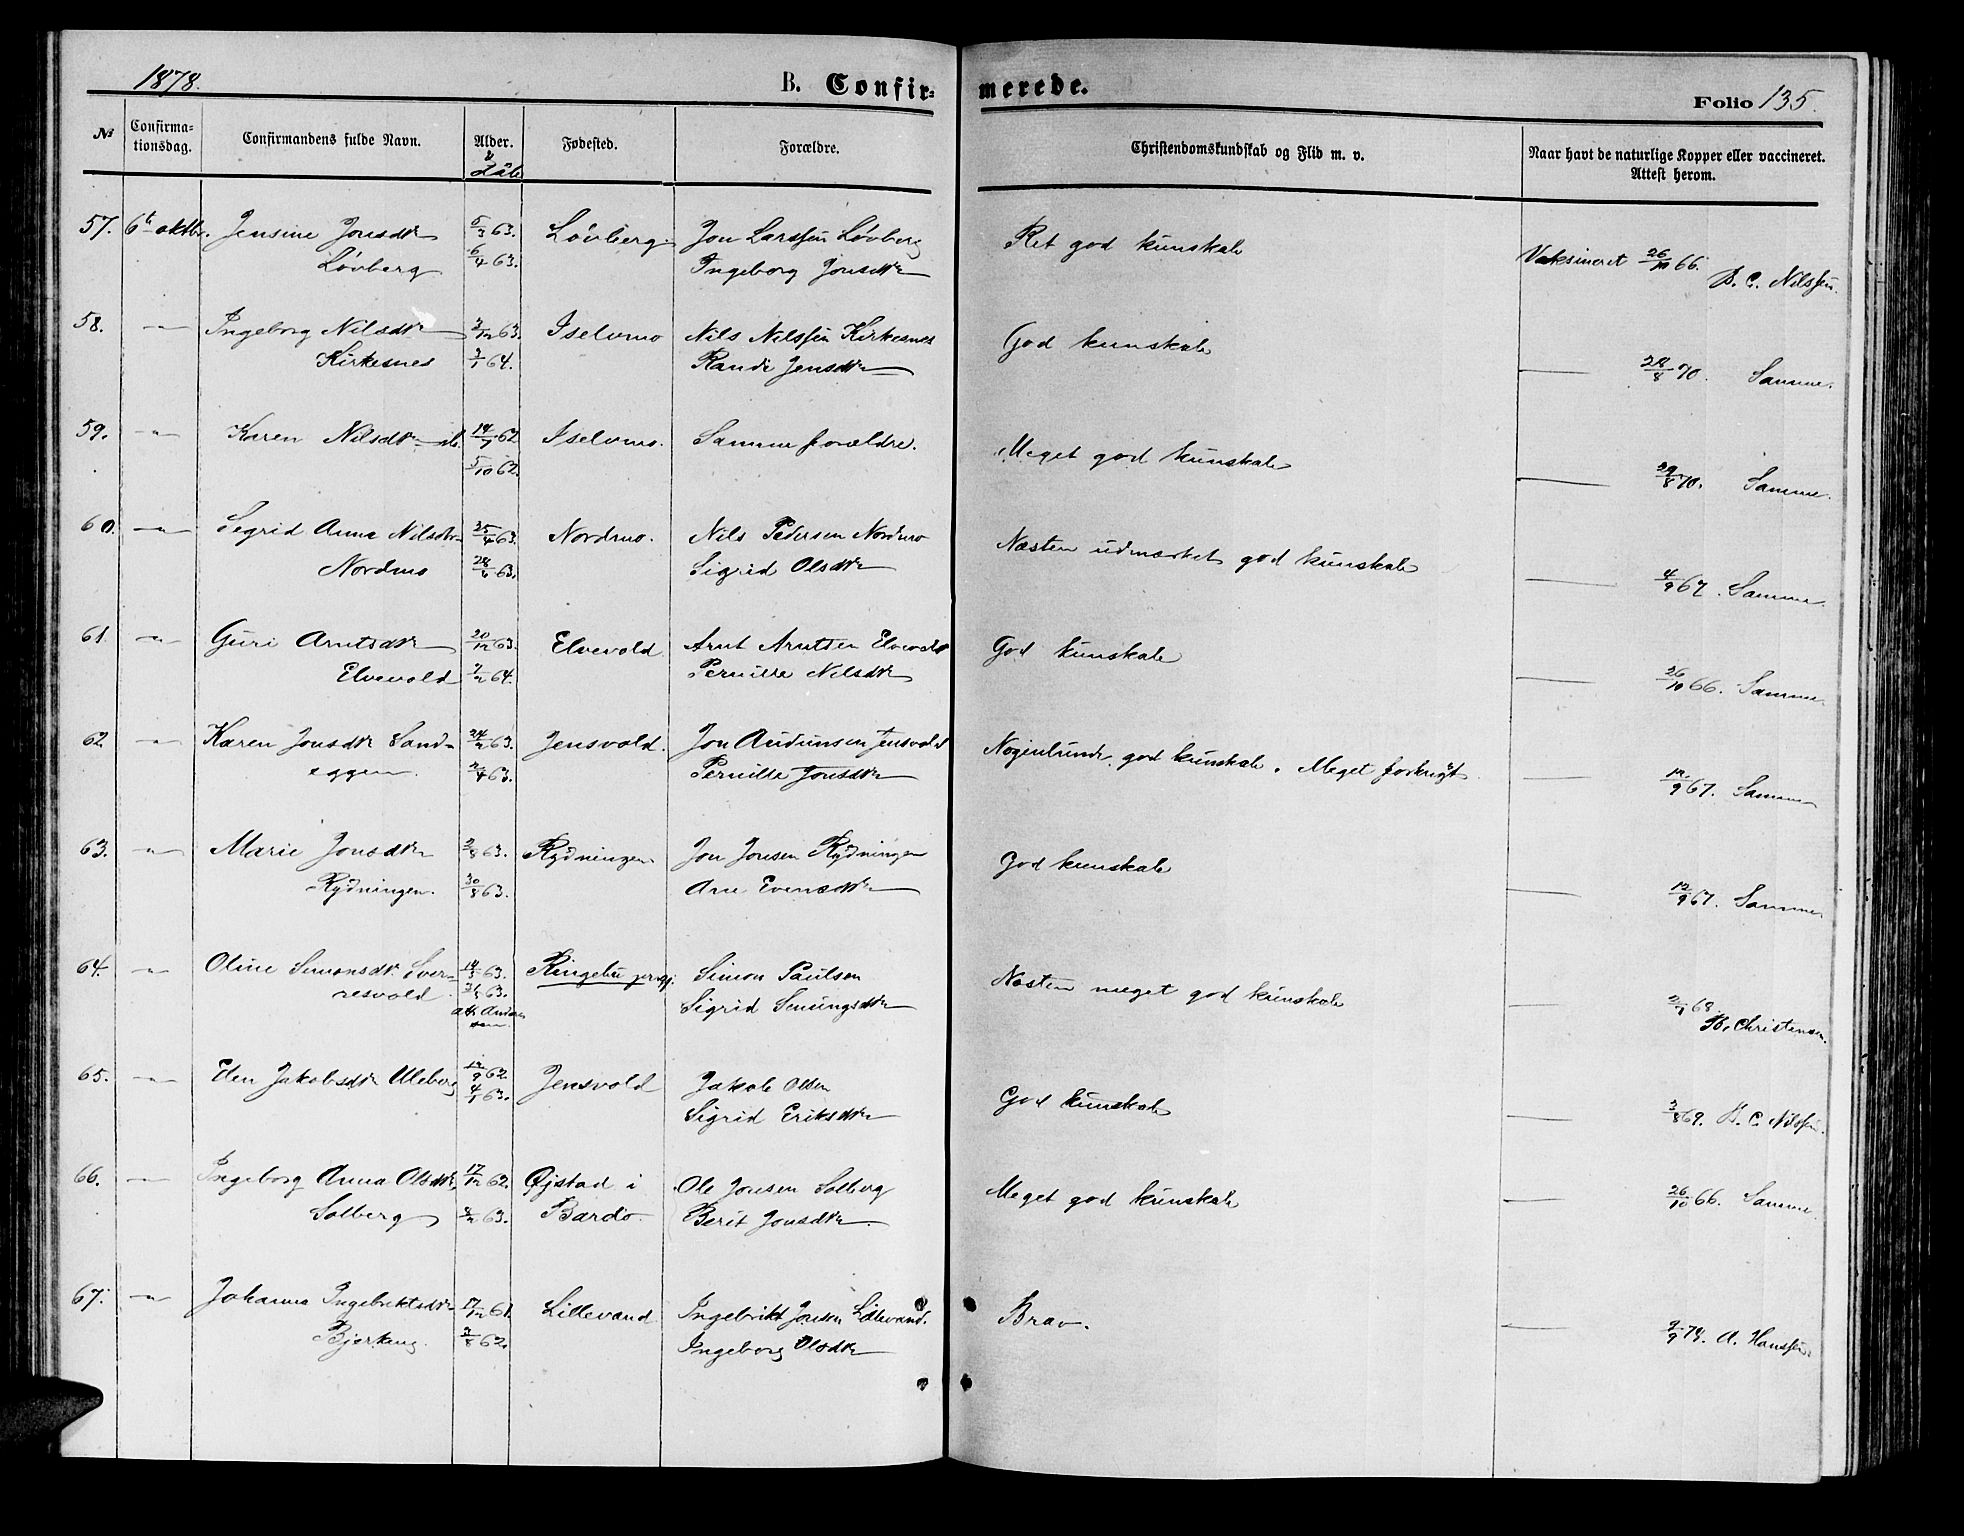 1878.
B. Confir-
merede.
Folio 135.
№
Confirma-
tionsdag.
Confirmandens fulde Navn.
Alder.
&
Dåb
Fødested.
Forældre.
Christendomskundskab og Flid m. v.
Naar havt de naturlige Kopper eller vaccineret.
Attest herom.
57. 6te oktbr. Jensine Jonsdtr 5/3 63. Løvberg. Jon Larssen Løvberg Ret god kunskab Vaksineret 26/10 66.
Løvberg 6/4 63. Ingeborg Jonsdtr B. C. Nilssen.
58. —"— Ingeborg Nilsdtr 3/12 63. Iselvmo Nils Nilssen Kirkesnes God kunskab
Kirkesnes 3/1 64. Randi Jensdtr — 29/8 70. Samme.
59. —"— Karen Nilsdtr — ib. 14/7 62 Iselvmo. Samme forældre. Meget god kunskab
5/10 62. — 29/8 70. Samme.
60. —"— Segrid Anna Nilsdtr 25/4 63. Nordmo. Nils Pedersen Nordmo Næsten udmærket god kunskab
Nordmo 28/6 63. Sigrid Olsdtr — 4/9 67. Samme.
61. —"— Guri Arntsdtr 20/12 63. Elvevold Arnt Arntsen Elvevold God kunskab
Elvevold 7/2 64. Pernille Nilsdtr — 26/10 66. Samme
62 —"— Karen Jonsdtr Sand- 24/2 63. Jensvold. Jon Audunsen Jensvold Nogenlunde god kunskab. Meget forknyt.
eggen. 3/4 63. Pernille Jonsdtr — 12/9 67. Samme
63. —"— Marie Jonsdtr 2/8 63. Rydningen Jon Jonsen Rydningen God kunskab
Rydningen. 30/8 63. Ane Evensdtr — 12/9 67. Samme
64. —"— Oline Simonsdtr Sver- 14/3 63. Ringebu prgj. Simon Paulsen Næsten meget god kunskab
resvold. 3/5 63. Sigrid Smingsdtr — 2/7 68.
B. Christensen.
65. —"— Elen Jakobsdtr Uleberg 12/9 62 Jensvold Jakob Olsen God kunskab
4/1 63. Sigrid Eriksdtr — 3/8 69. B. C. Nilssen.
66. —"— Ingeborg Anna Olsdtr 17/12 62. Øjstad i Ole Jonsen Solberg Meget god kunskab — 26/10 66. Samme.
Solberg 8/2 63. Bardo. Berit Jonsdtr
67. —"— Johanna Ingebriktsdtr 17/12 61. Lillevand Ingebrikt Jonsen Lillevand. Brav.
Bjerkeng. 3/8 62. Ingeborg Olsdtr — 2/9 74. A. Hanssen.